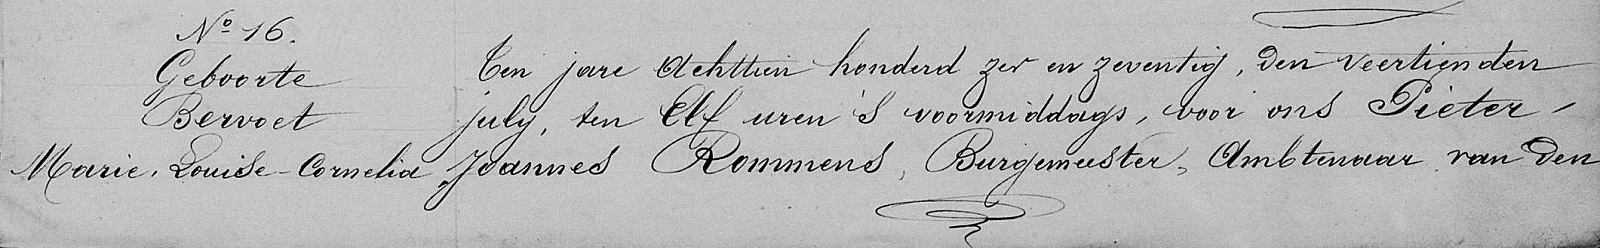 Nº 16.
Geboorte
Bervoet
Marie-Louise-Cornelia
Ten jare achttien honderd zes en zeventig, den veertienden
july, ten Elf uren 's voormiddags, voor ons Pieter-
Joannes Rommens, Burgemeester, Ambtenaar van den